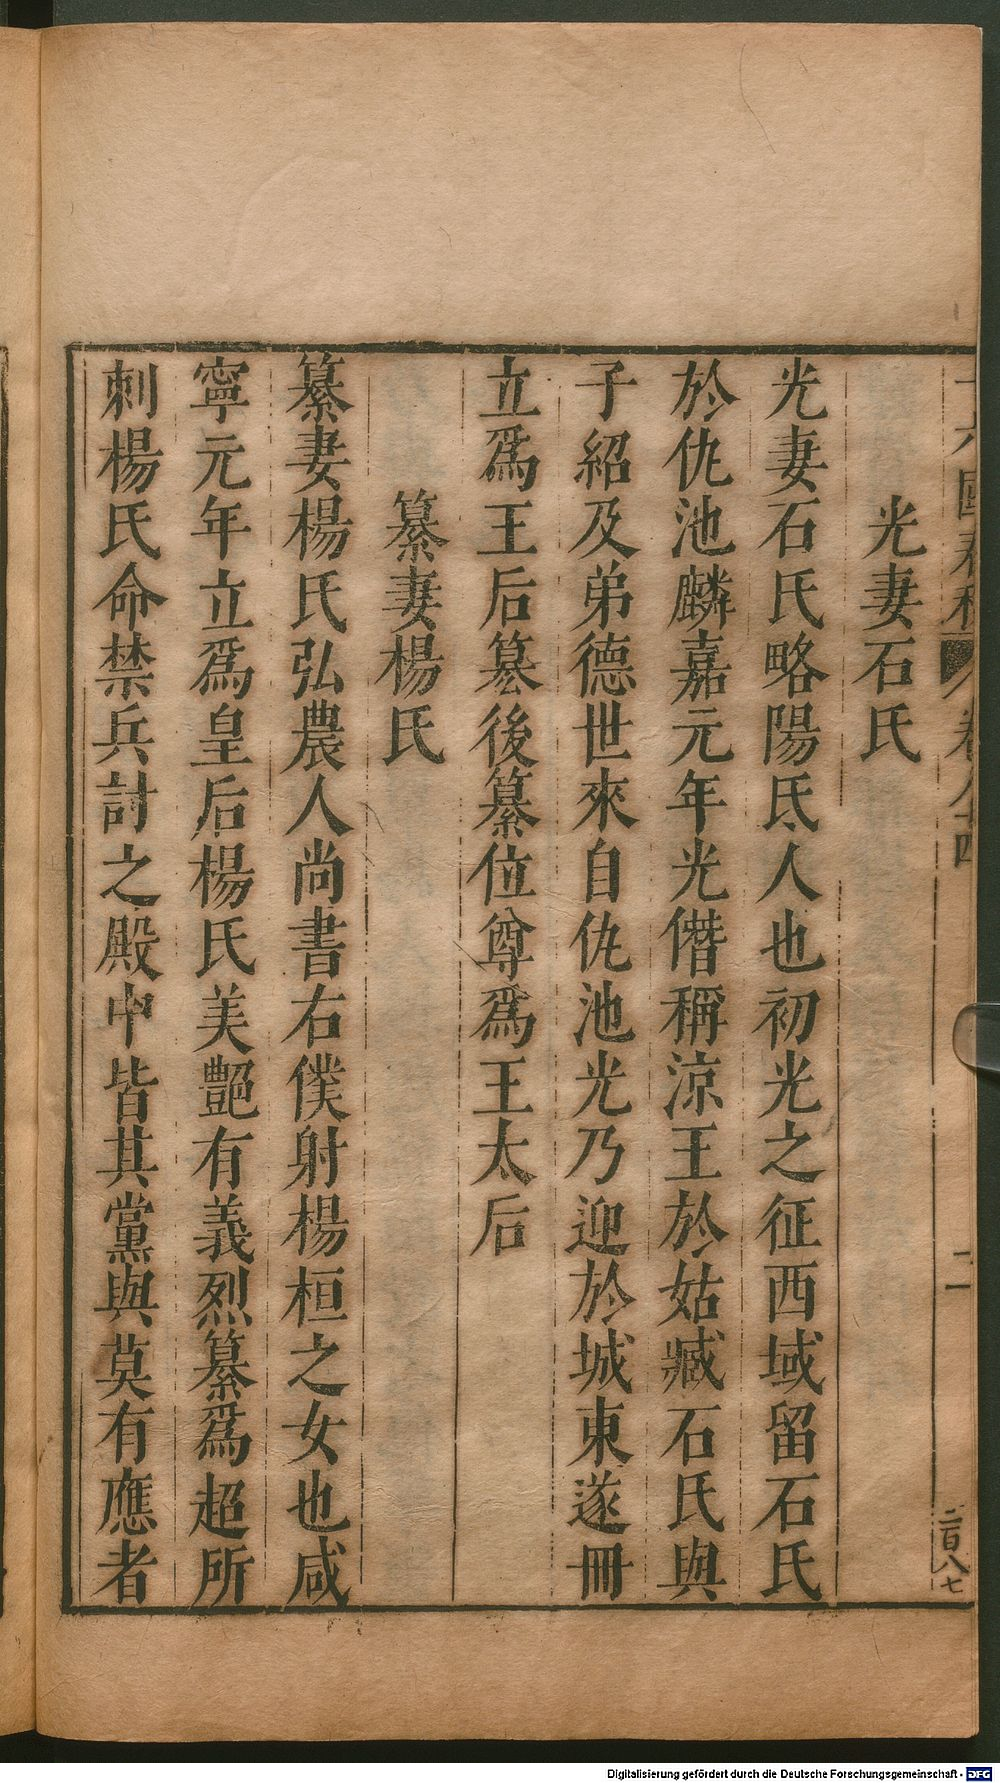 十六國春秋 卷八十四 二 二百八七
光妻石氏
光妻石氏略陽氐人也初光之征西域留石氏
於仇池麟嘉元年光僭稱涼王於姑臧石氏與
子紹及弟德世來自仇池光乃迎於城東遂冊
立爲王后纂後纂位尊爲王太后
纂妻楊氏
纂妻楊氏弘農人尚書右僕射楊桓之女也咸
寧元年立爲皇后楊氏美艷有義烈纂爲超所
刺楊氏命禁兵討之殿中皆其黨與莫有應者
Digitalisierung gefördert durch die Deutsche Forschungsgemeinschaft - DFG